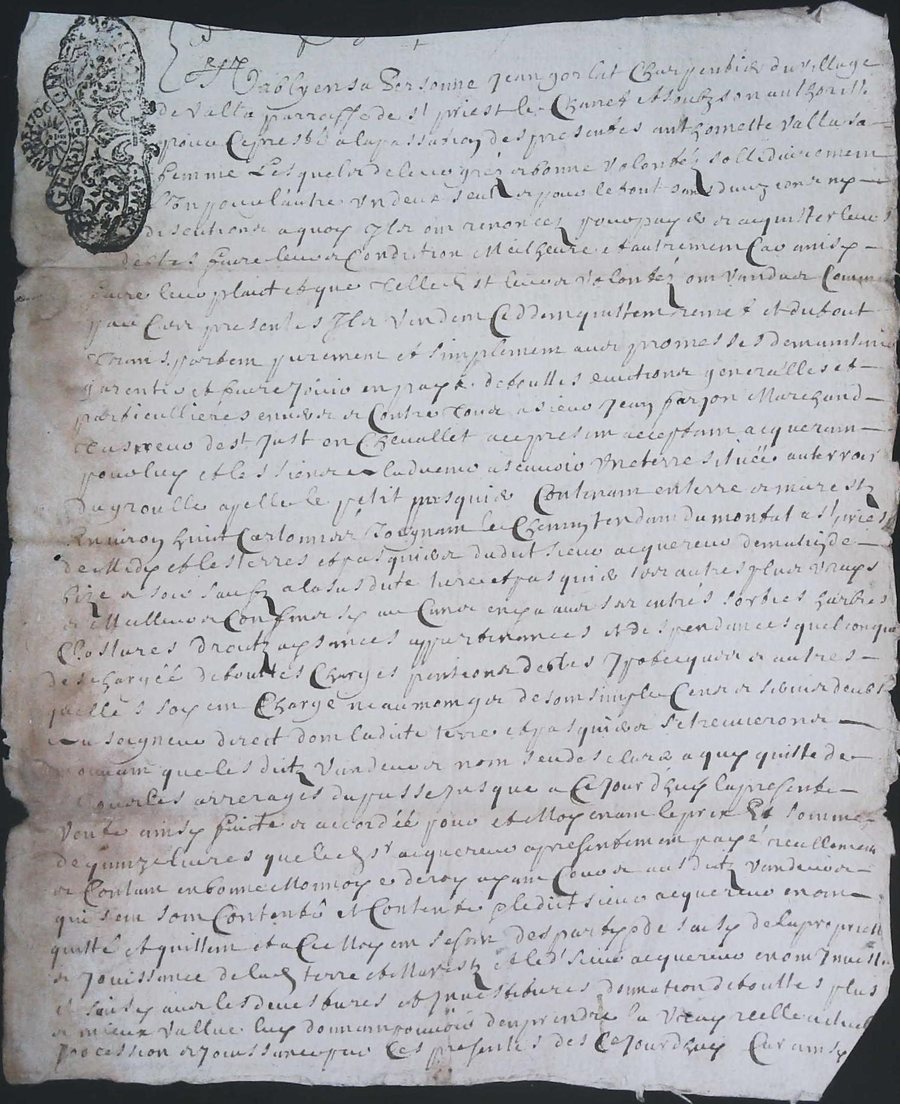 Estably en sa personne Jean gorlat Charpentier du village
de valla parroisse de st priest le Chanet et soubz son authorité
pour Ce presté a la passation des presentes anthoinette valla sa
femme Lesquels de leur gré et bonne volonté sollidairement
l'un pour l'autre un deux seul et pour le tout sans division ny
discution a quoy Ils ont renoncez pour payer et acquitter leurs
debtes faire leurs Condition Meilheure et autrement Car ainsy
faire leur plaict et que telle est leurs volontéz ont vandus Comme
par Ces presentes Ils vendent Ceddent quittent remet et du tout
trans portent purement et simplement avec promesses de maintenir
garentir et faire Jouir en paix de touttes evictions generalles et
particullieres envers et Contre tous a sieur Jean farjon Marchand
de st Just en Chevallet acy present acceptant acquerant
pour luy et les siens a l'advenir a scavoir une terre située au terroir
du groulle apellé le petit pasquier Contenant en terre et marest
Environ huict Cartonnier Joignant le Chemin tendant du montat a st priest
de Midy et les terres et pasquier dudit sieur acquereur de matin de
bize et soir sauf a la susdite terre et pasquier ses autres plus vrays
et Meilleurs Confins sy aucuns en y a avec ses entrés sorties harbres
Clostures droitz aysances appartenances et despendances quelconque
deschargée de touttes Charges pentions debtes Ypotecques et autres
quelles soyent Charge neaumoings de son simple Cens et servis deubt
au seigneur direct dont ladite terre et pasquier se trouverons
mouvant que lesditz vandeurs nont sceu desclarer a quoy quitte de
tous les arrerages du passé jusque a Ce Jourd'huy la presente
vente ainsy faicte et accordée pour et Moyenant le prix Et somme
de quinze livres que led sr acquereur a presentement payé reellement
et Contant en bonne Monnoye de roy ayant Cours ausditz vandeurs
qui s'en sont Contenté et Contente ledict sieur acquereur en ont
quitté et quittent et a Ce Moyent se sont despartys de saisy de la proprieté
et Jouissance de lad terre et Marestz et led sieur acquereur en ont Investu
et saisy avec les devestures et Investitures donnation de touttes plus
et mieux vallue luy donnant pouvoir d'en prendre la vraye reelle actuelle
pocession et Jouissance par Ces presentes des Ce Jourd'huy Car ainsy